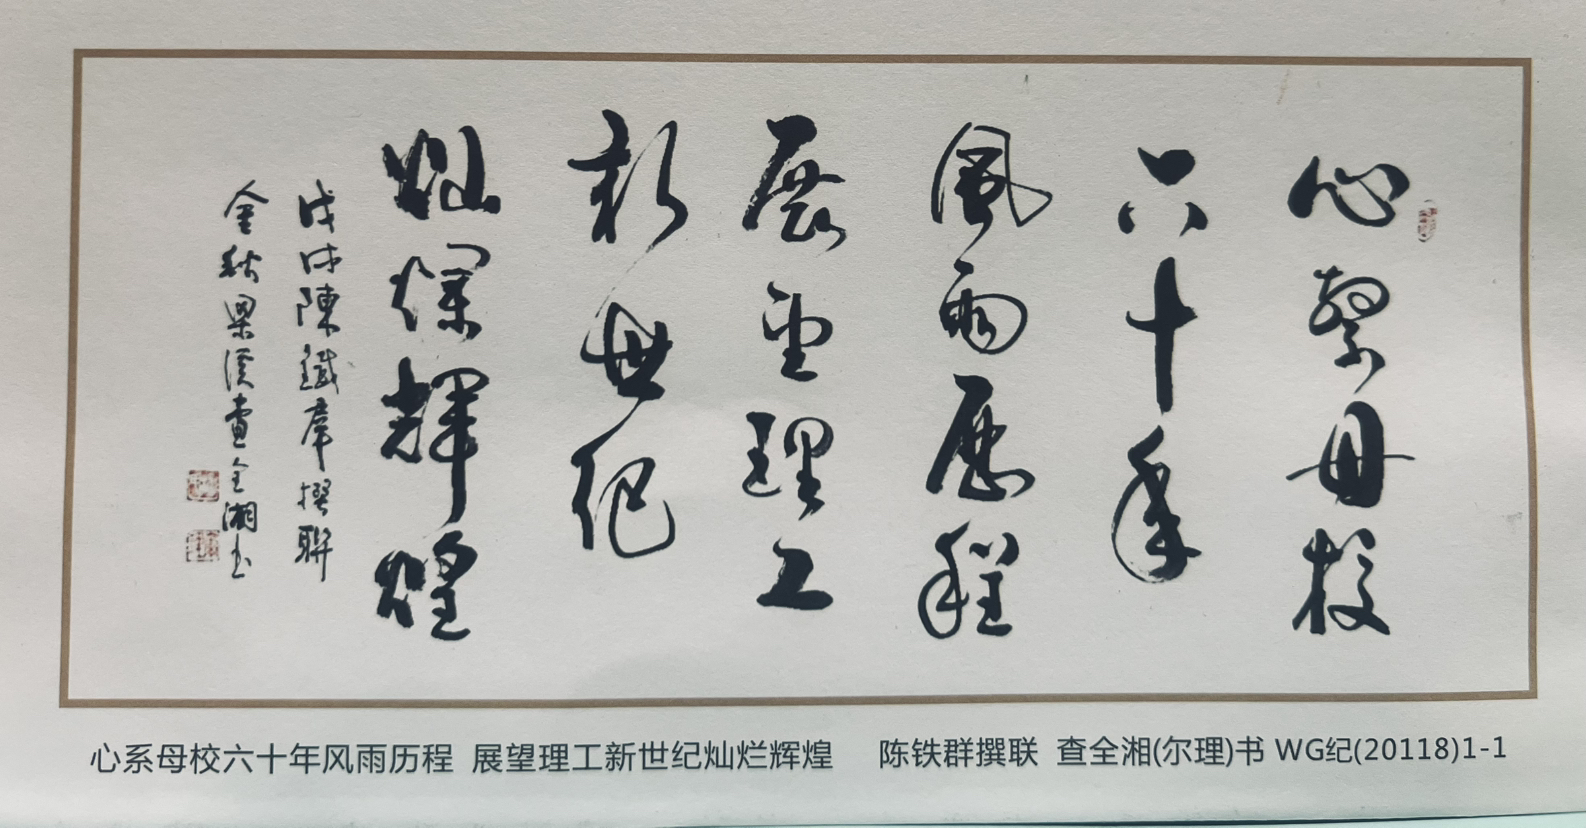 心繫母校
六十年
風雨歷程
展望理工
新世紀
灿爛輝煌
戊戌陳鐵羣撰聯
金秋梁溪查全湘书
心系母校六十年风雨历程 展望理工新世纪灿烂辉煌 陈铁群撰联 查全湘(尔理)书 WG纪(20118)1-1